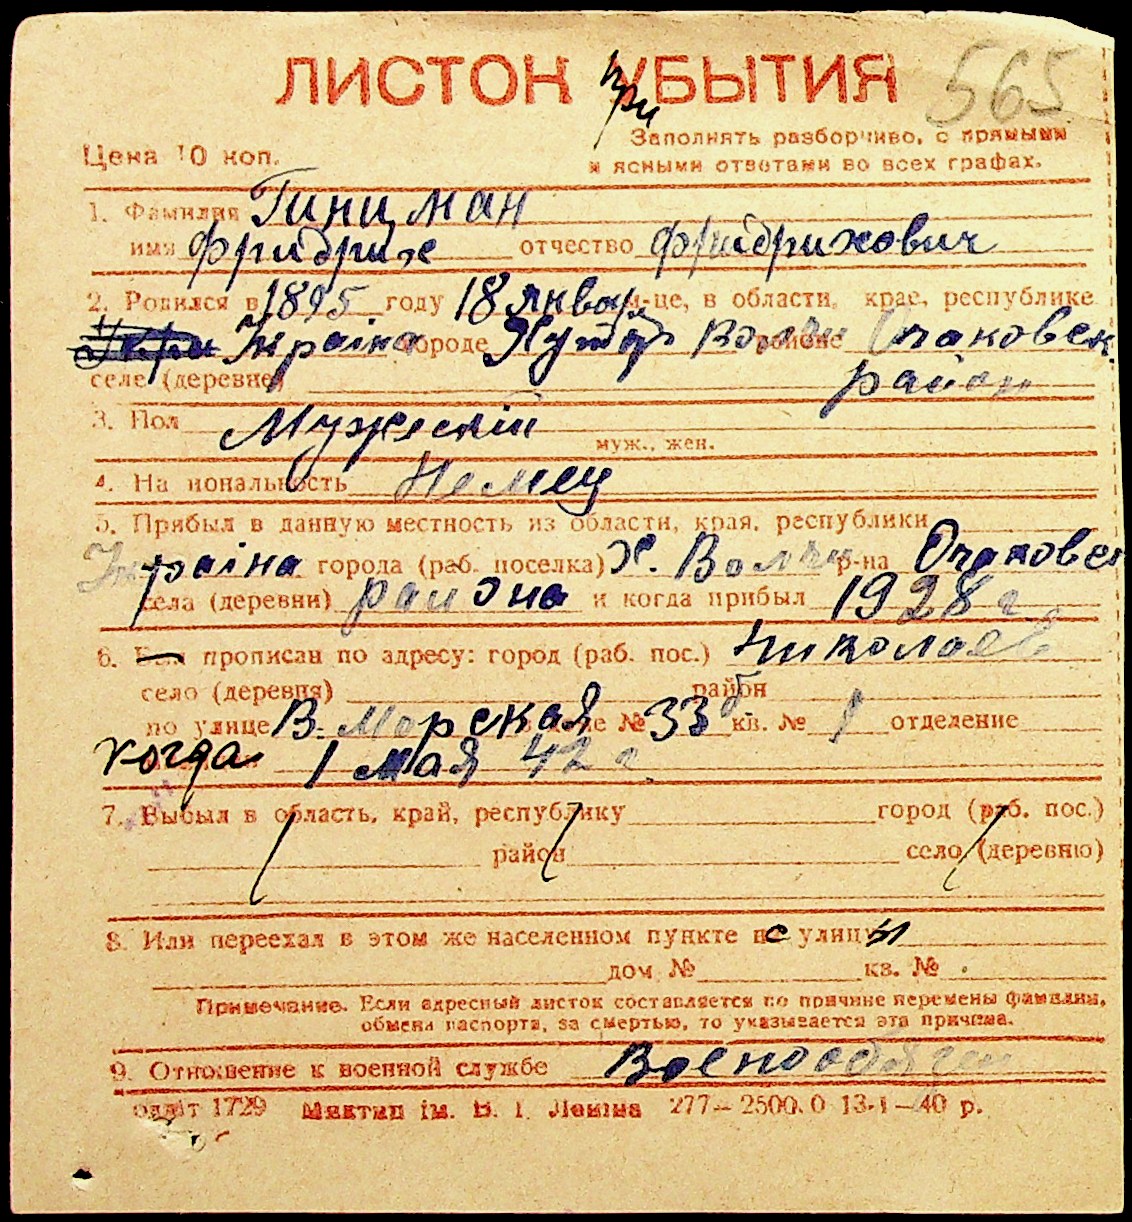 ЛИСТОК УБЫТИЯ 565
при
Заполнять разборчиво, с прямыми
Цена 10 коп. и ясными ответами во всех графах.
1. Фамилия Гинцман
имя Фридрих отчество Фридрихович
2. Родился в 1895 году 18 январ м-це, в области, крае, республике
Україна городе Хутор Волчи районе Очаковск
селе (деревне) район
3. Пол Мужескій
муж., жен.
4. Национальность Немец
5. Прибыл в данную местность из области, края, республики
Україна города (раб. поселка) Х. Волчи р-на Очаковск
села (деревни) района и когда прибыл 1928 г
6. Был прописан по адресу: город (раб. пос.) Николаев
село (деревня) район
по улице В. Морская в доме № 33 б кв. № 1 отделение
когда 1 мая 42 г.
7. Выбыл в область, край, республику город (раб. пос.)
район село (деревню)
8. Или переехал в этом же населенном пункте с улицы
дом № кв. №
Примечание. Если адресный листок составляется по причине перемены фамилии,
обмена паспорта, за смертью, то указывается эта причина.
9. Отношение к военной службе Военнообязан
1729 Миктип ім. В. І. Леніна 277—2500.0 13-І—40 р.